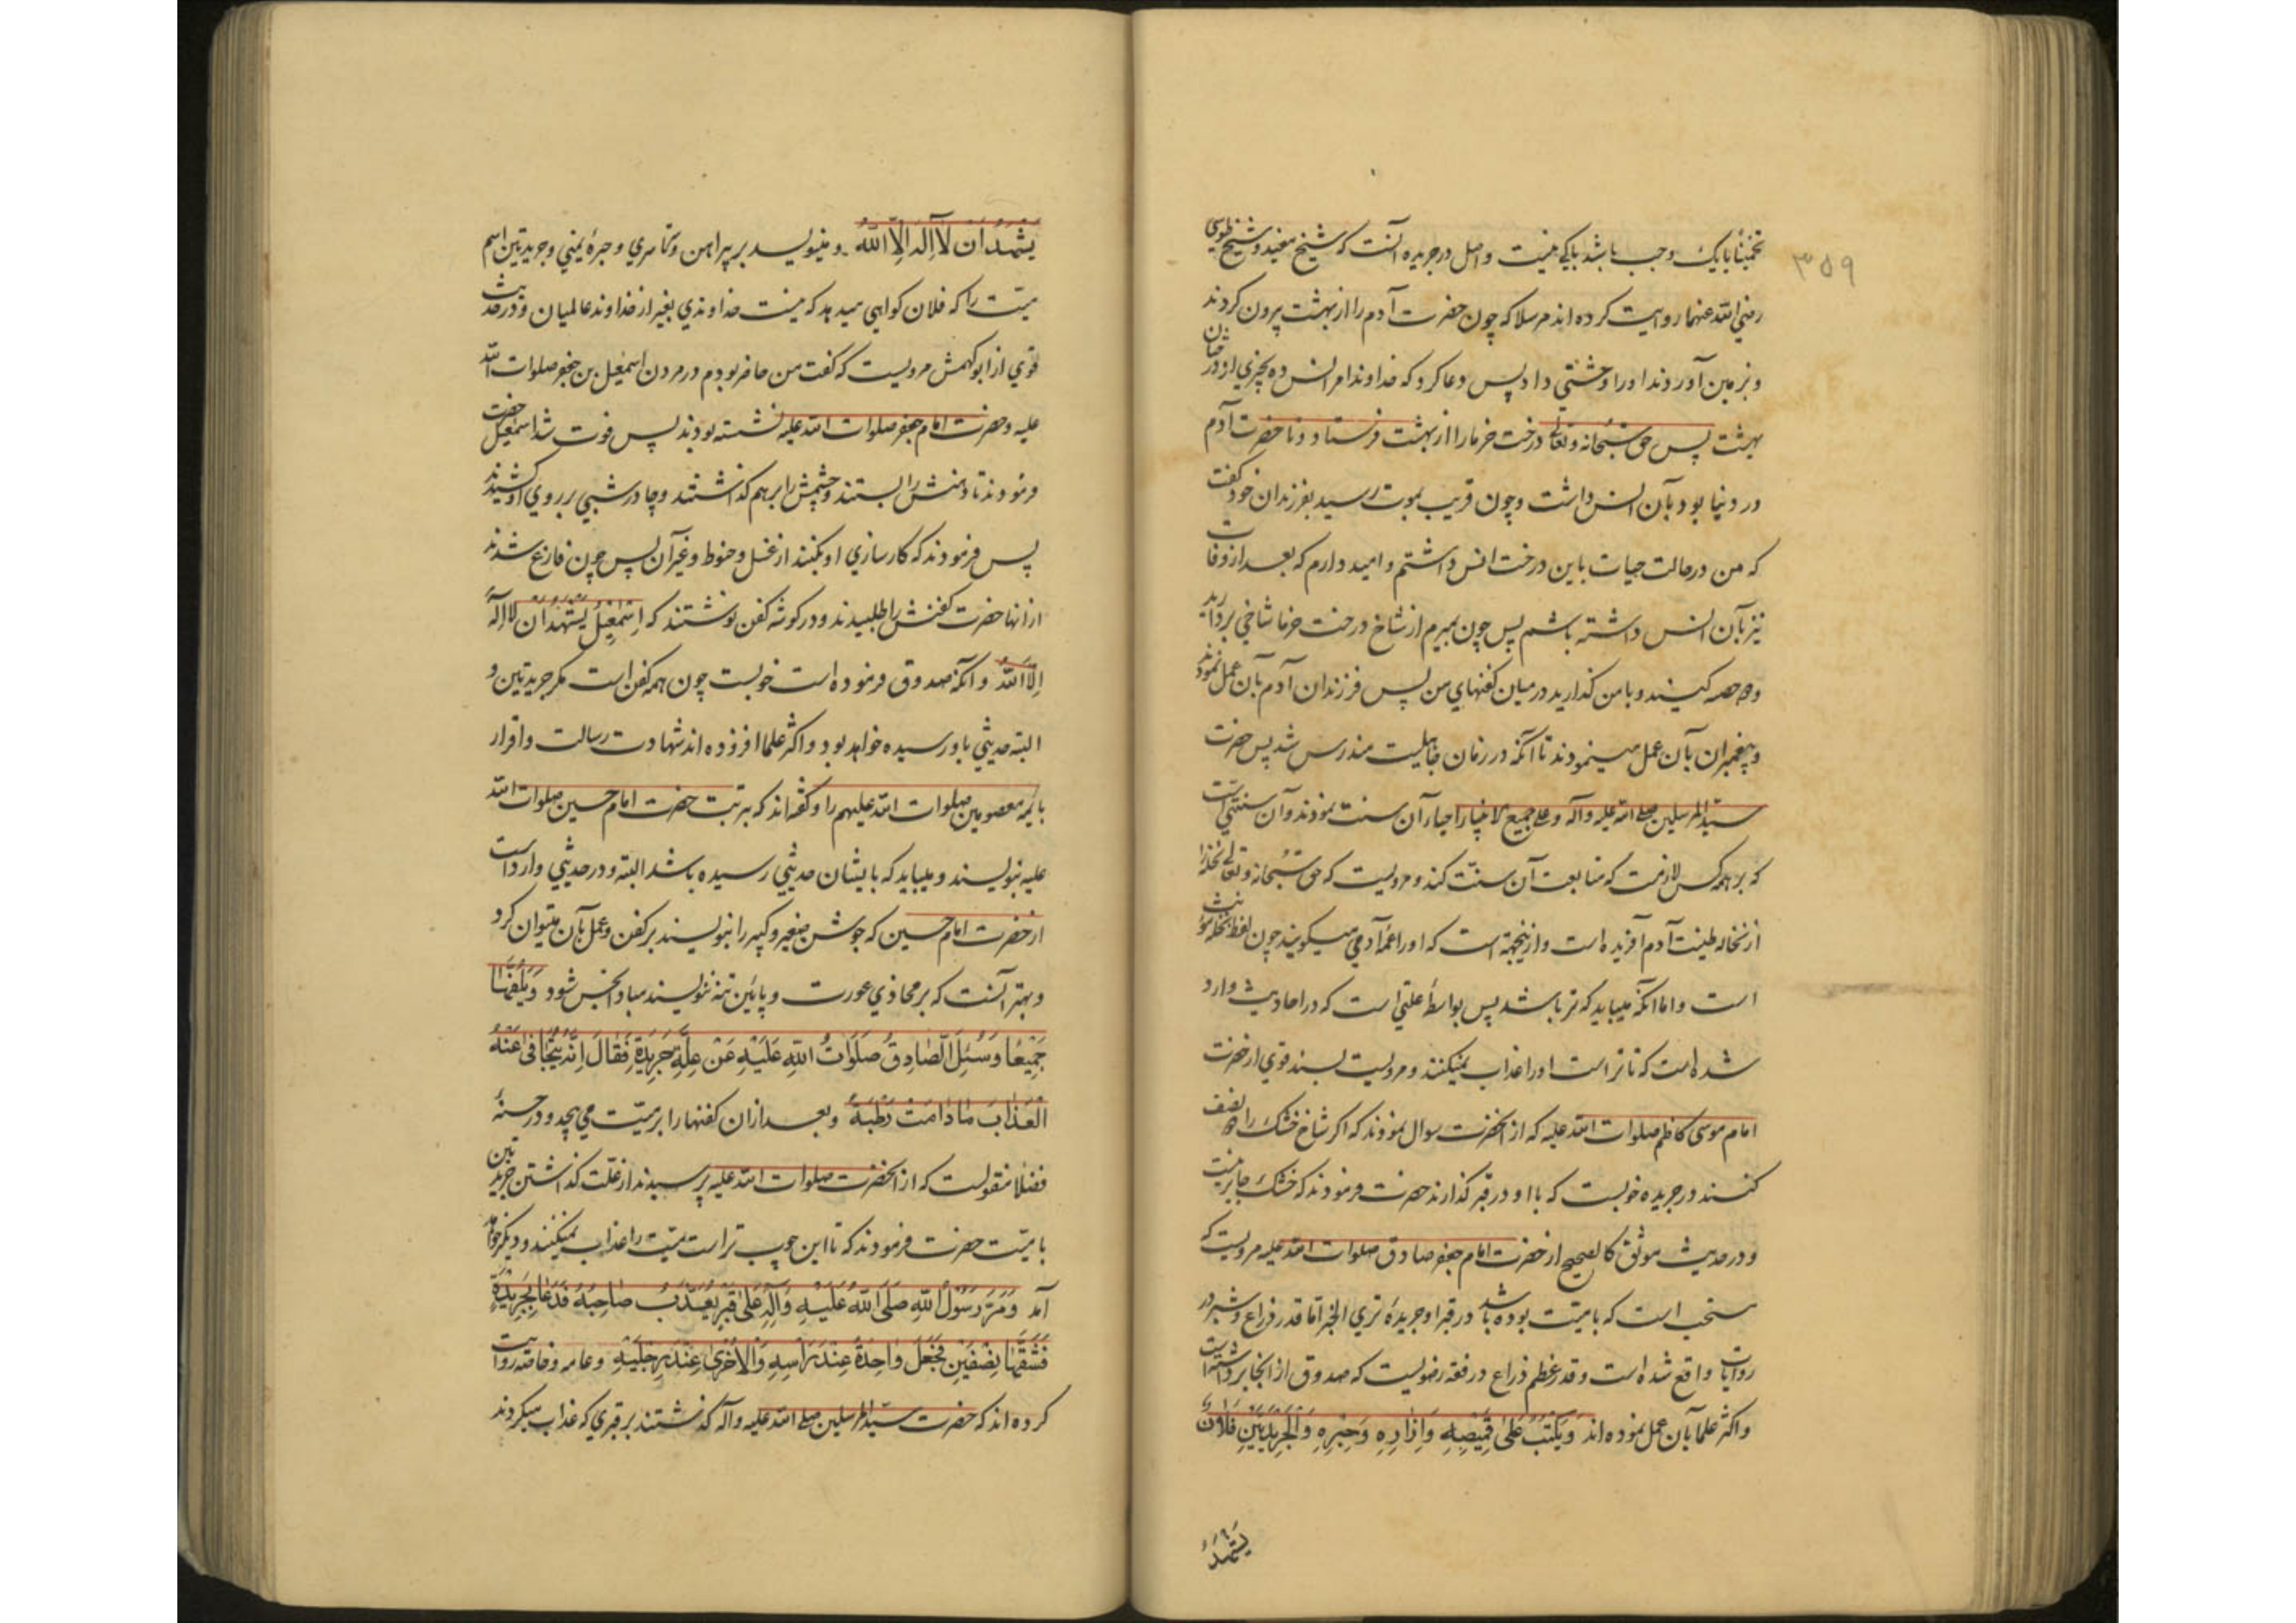 ۳۵۹
تخمیناً بایک وجب باشد باکی نیست و اصل در جریده آنست که شیخ مفید و شیخ طوسی
رضی الله عنهما روایت کرده اند مرسلا که چون حضرت آدم را از بهشت بیرون کردند
و بزمین آوردند او را وحشتی داد پس دعا کرد که خداوندا مرا انس ده بچیزی از درختان
بهشت پس حق سبحانه و تعالی درخت خرما را از بهشت فرستاد و تا حضرت آدم
در دنیا بود بآن انس داشت و چون قریب بموت رسید بفرزندان خود گفت
که من در حالت حیات باین درخت انس داشتم و امید دارم که بعد از وفات
نیز بآن انس داشته باشم پس چون بمیرم از شاخ درخت خرما شاخی بردارید
و دو حصه کنید و با من گذارید در میان کفنهای من پس فرزندان آدم بآن عمل نمودند
و پیغمبران بآن عمل مینمودند تا آنکه در زمان جاهلیت مندرس شد پس حضرت
سید المرسلین صلی الله علیه و آله و علی جمیع الانبیا احیاء آن سنت نمودند و آن سنتی است
که بر همه کس لازمست که متابعت آن سنت کند و مرویست که حق سبحانه و تعالی نخله را
از نخاله طینت آدم آفریده است و ازینجهة است که او را عمه آدمی میگویند چون لفظ نخله مؤنث
است و اما آنکه میباید که تر باشد پس بواسطه علتی است که در احادیث وارد
شده است که تا تر است او را عذاب نمیکنند و مرویست بسند قوی از حضرت
امام موسی کاظم صلوات الله علیه که از آنحضرت سوال نمودند که اکر شاخ خشک را نصف
کنند در جریده خوبست که با او در قبر گذارند حضرت فرمودند که خشک جایز نیست
و در حدیث موثق کالصحیح از حضرت امام جعفر صادق صلوات الله علیه مرویست که
مستحب است که با میت بوده باشد در قبر او جریده تری الخبر اما قدر ذراع و شبر در
روایات واقع شده است و قدر عظم ذراع در فقه رضویست که صدوق از آنجا برداشته است
و اکثر علما بآن عمل نموده اند وَیُکْتَبُ عَلیٰ قَمِیصِهِ وَاِزَارِهِ وَحِبْرِهِ وَالْجَرِیدَتَیْنِ فُلَانٌ
یَشْهَدُ
یَشْهَدُ اَنْ لَا اِلٰهَ اِلَّا اللّٰهُ و مینویسد بر پیراهن و سرتاسری و حبره یمنی و جریدتین اسم
میت را که فلان کواهی میدهد که نیست خداوندی بغیر از خداوند عالمیان و در حدیث
قوی از ابو کهمش مرویست که گفت من حاضر بودم در مردن اسمعیل بن جعفر صلوات الله
علیه و حضرت امام جعفر صلوات الله علیه نشسته بودند پس فوت شد اسمعیل حضرت
فرمودند تا دهنش را بستند و چشمش را برهم گذاشتند و چادر شبی بر روی او کشیدند
پس فرمودند که کارسازی او بکنند از غسل و حنوط و غیر آن پس چون فارغ شدند
از آنها حضرت کفنش را طلبیدند و در کوشه کفن نوشتند که اِسْمٰعِیلُ یَشْهَدُ اَنْ لَا اِلٰهَ
اِلَّا اللّٰهُ و آنکه صدوق فرموده است خوبست چون همه کفن است مکر جریدتین و
البته حدیثی باو رسیده خواهد بود و اکثر علما افزوده اند شهادت رسالت و اقرار
بائمه معصومین صلوات الله علیهم را و گفته اند که بتربت حضرت امام حسین صلوات الله
علیه بنویسند و میباید که بایشان حدیثی رسیده باشد البته و در حدیثی وارد است
از حضرت امام حسین که جوشن صغیر و کبیر را بنویسند بر کفن و عمل بآن میتوان کرد
و بهتر آنست که بر محاذی عورت و پایین تنه ننویسند مبادا نجس شود وَیَلُفُّهَا
جَمِیعًا وَسُئِلَ الصَّادِقُ صَلَوَاتُ اللّٰهِ عَلَیْهِ عَنْ عِلَّةِ جَرِیدَةِ فَقَالَ اِنَّهُ یَتَجَافیٰ عَنْهُ
الْعَذَابُ مَا دَامَتْ رَطْبَةً و بعد از آن کفنها را بر میت می پیچد و در حسنه
فضلا منقولست که از آنحضرت صلوات الله علیه پرسیدند از علت گذاشتن جریدتین
با میت حضرت فرمودند که تا این چوب تر است میت را عذاب نمیکنند و دیکر خواهد
آمد وَمَرَّ رَسُولُ اللّٰهِ صَلَّی اللّٰهُ عَلَیْهِ وَآلِهِ عَلیٰ قَبْرٍ یُعَذَّبُ صَاحِبُهُ فَدَعَا بِجَرِیدَةٍ
فَشَقَّهَا بِنِصْفَیْنِ فَجَعَلَ وَاحِدَةً عِنْدَ رَأْسِهِ وَالْاُخْریٰ عِنْدَ رِجْلَیْهِ و عامه و خاصه روایت
کرده اند که حضرت سید المرسلین صلی الله علیه و آله گذشتند بر قبری که عذاب میکردند